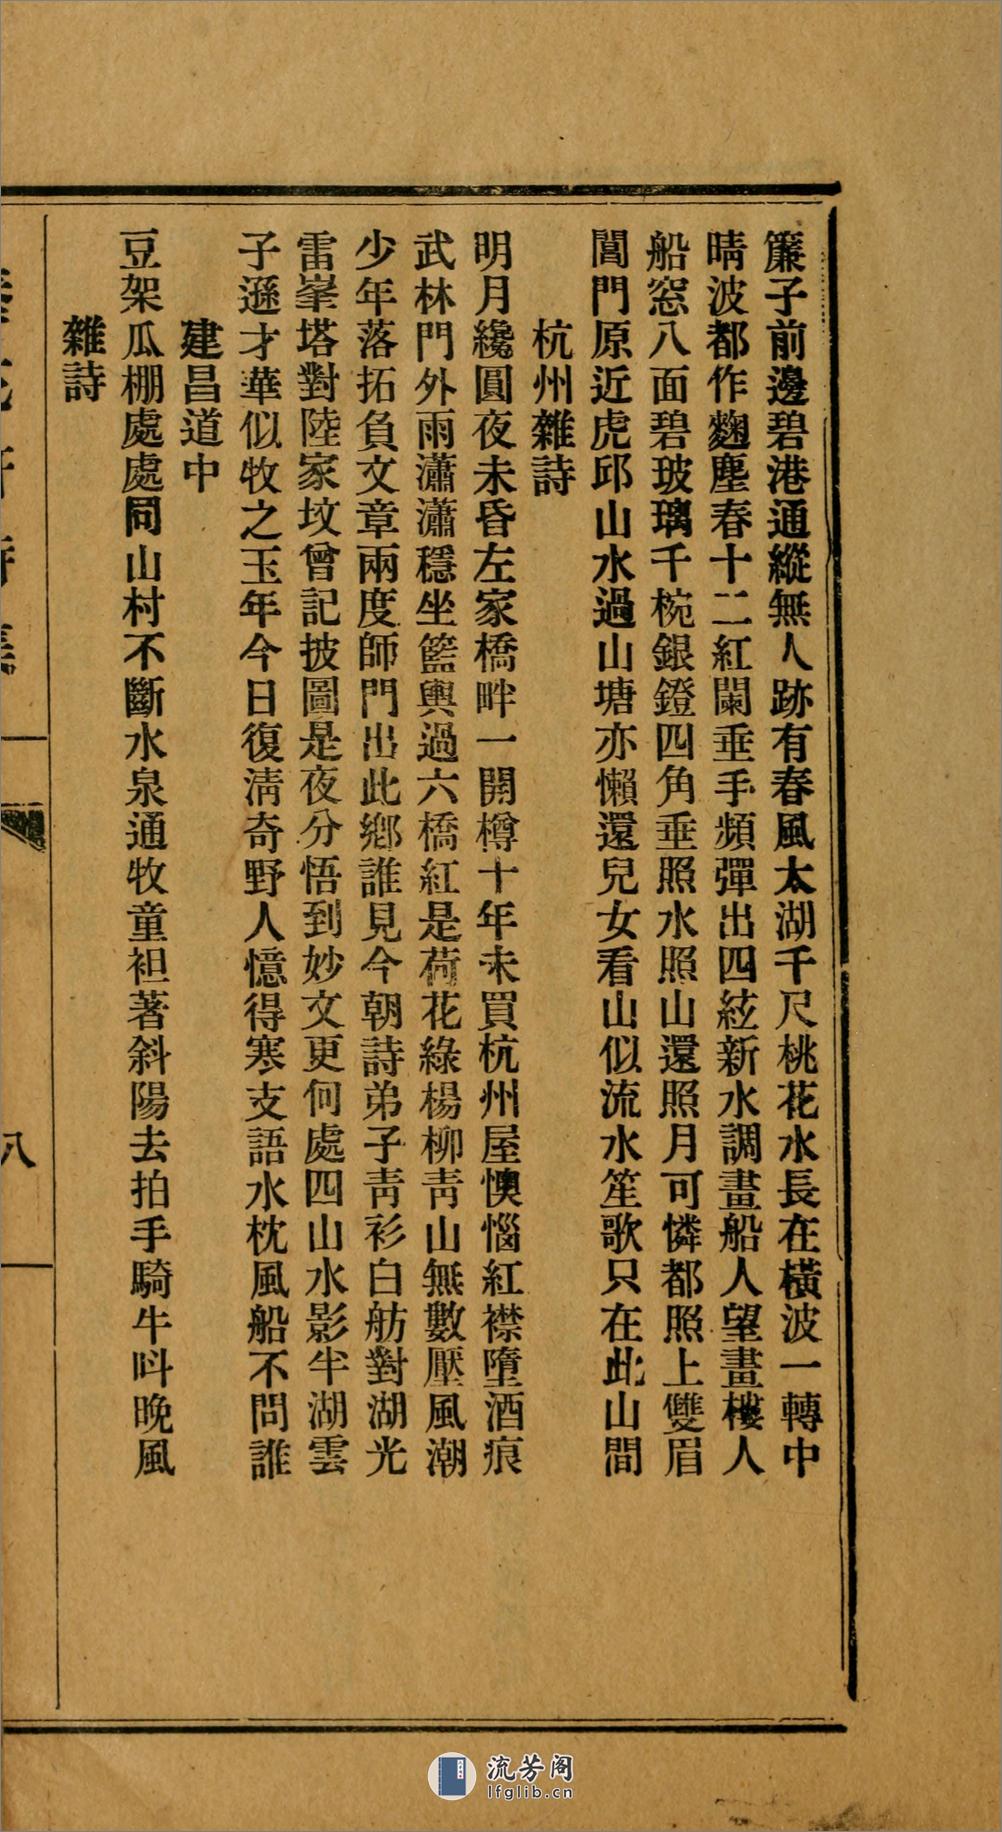 簾子前邊碧港通縱無人跡有春風太湖千尺桃花水長在橫波一轉中
晴波都作麴塵春十二紅闌垂手頻彈出四絃新水調畫船人望畫樓人
船窓八面碧玻璃千椀銀鐙四角垂照水照山還照月可憐都照上雙眉
閶門原近虎邱山水過山塘亦懶還兒女看山似流水笙歌只在此山間
杭州雜詩
明月纔圓夜未昏左家橋畔一開樽十年未買杭州屋懊惱紅襟墮酒痕
武林門外雨瀟瀟穩坐籃輿過六橋紅是荷花綠楊柳靑山無數壓風潮
少年落拓負文章兩度師門出此鄕誰見今朝詩弟子靑衫白舫對湖光
雷峯塔對陸家墳曾記披圖是夜分悟到妙文更何處四山水影半湖雲
子遜才華似牧之玉年今日復淸奇野人憶得寒支語水枕風船不問誰
建昌道中
豆架瓜棚處處同山村不斷水泉通牧童袒著斜陽去拍手騎牛呌晚風
雜詩
八
流芳阁
lfglib.cn